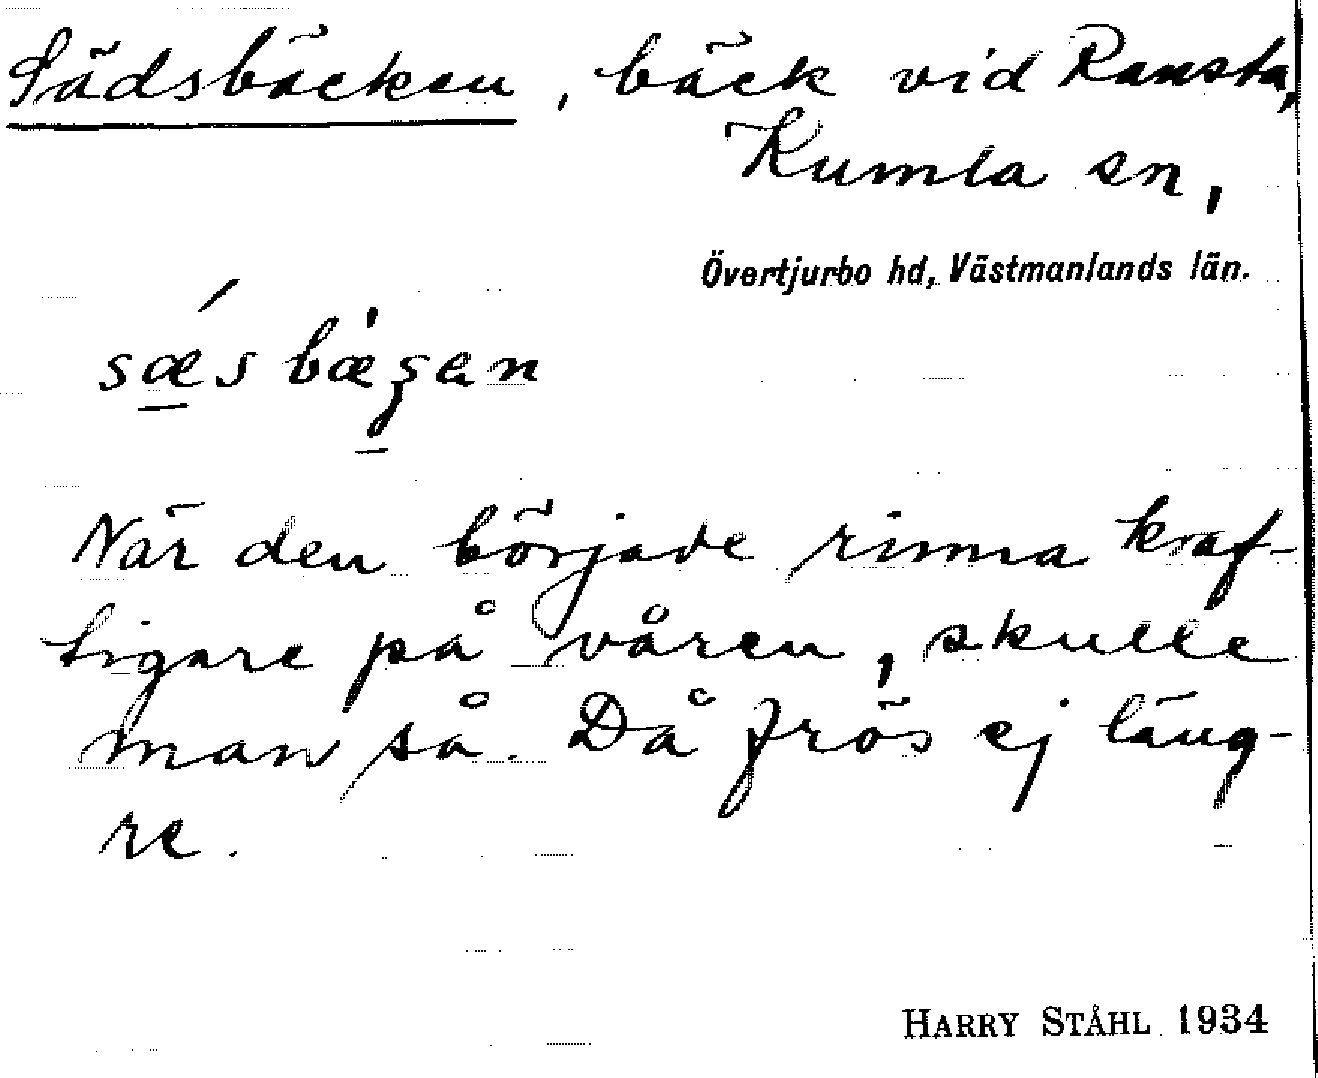 Sädsbäcken, bäck vid Ransta,
Kumla sn,
Övertjurbo hd, Västmanlands län.
sǽsbæʒen
När den började rinna kraf-
tigare på våren, skulle
man så. Då frös ej läng-
re.
HARRY STÅHL 1934